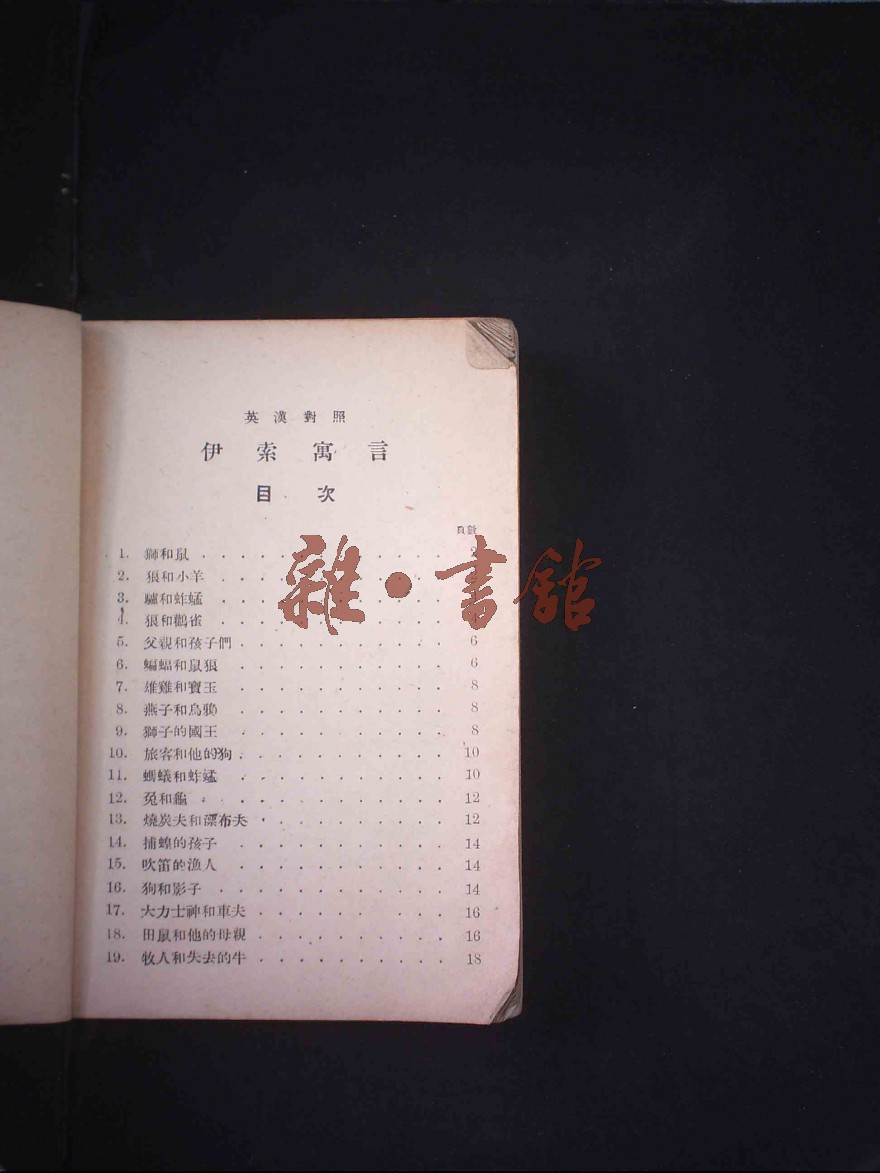 英漢對照
伊索寓言
目次
頁數
1. 獅和鼠 . . . . . . . . . . . . 2
2. 狼和小羊 . . . . . . . . . . .
3. 驢和蚱蜢 . . . . . . . . . . .
4. 狼和鸛雀 . . . . . . . . . . .
5. 父親和孩子們 . . . . . . . . . . . 6
6. 蝙蝠和鼠狼 . . . . . . . . . . . 6
7. 雄雞和寶玉 . . . . . . . . . . . 8
8. 燕子和烏鴉 . . . . . . . . . . . 8
9. 獅子的國王 . . . . . . . . . . . 8
10. 旅客和他的狗 . . . . . . . . . . . 10
11. 螞蟻和蚱蜢 . . . . . . . . . . . 10
12. 兔和龜 . . . . . . . . . . . . 12
13. 燒炭夫和漂布夫 . . . . . . . . . . 12
14. 捕蝗的孩子 . . . . . . . . . . . 14
15. 吹笛的漁人 . . . . . . . . . . . 14
16. 狗和影子 . . . . . . . . . . . . 14
17. 大力士神和車夫 . . . . . . . . . . 16
18. 田鼠和他的母親 . . . . . . . . . . 16
19. 牧人和失去的牛 . . . . . . . . . . 18
雜·書館